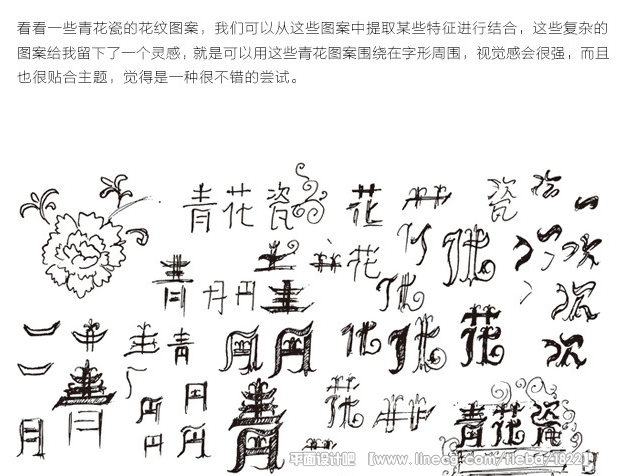 看看一些青花瓷的花纹图案，我们可以从这些图案中提取某些特征进行结合，这些复杂的
图案给我留下了一个灵感，就是可以用这些青花图案围绕在字形周围，视觉感会很强，而且
也很贴合主题，觉得是一种很不错的尝试。
青花瓷 花
花
青
花
青花瓷
平面设计吧